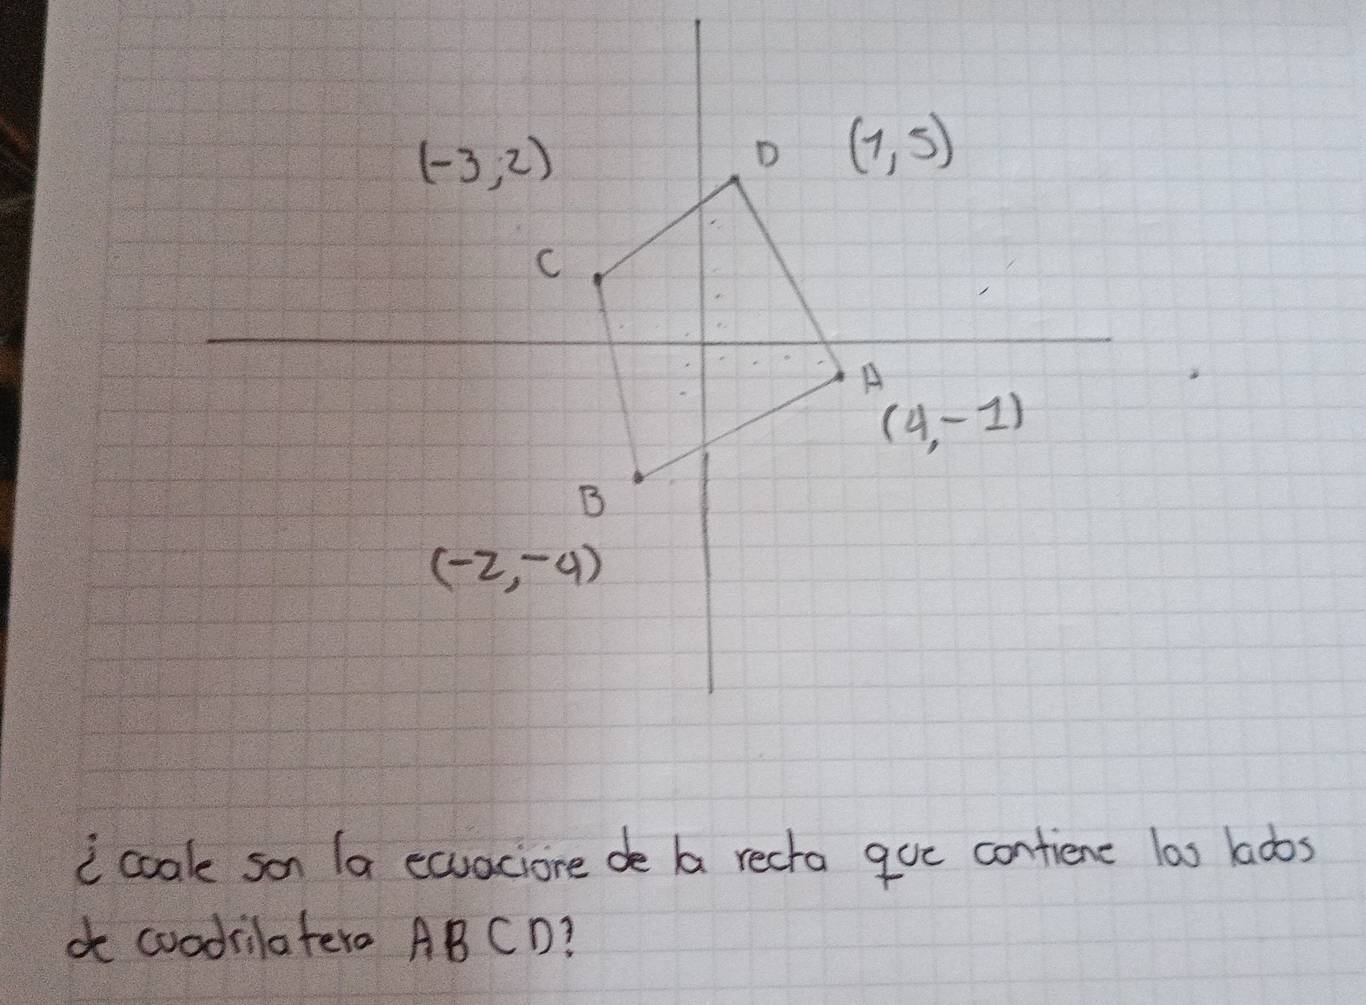 (-3;2)
D (1,5)
C
A
(4,-1)
B
(-2,-4)
¿ cuale son la ecuacione de la recta que contiene las lados
de cuadrilatero ABCD?